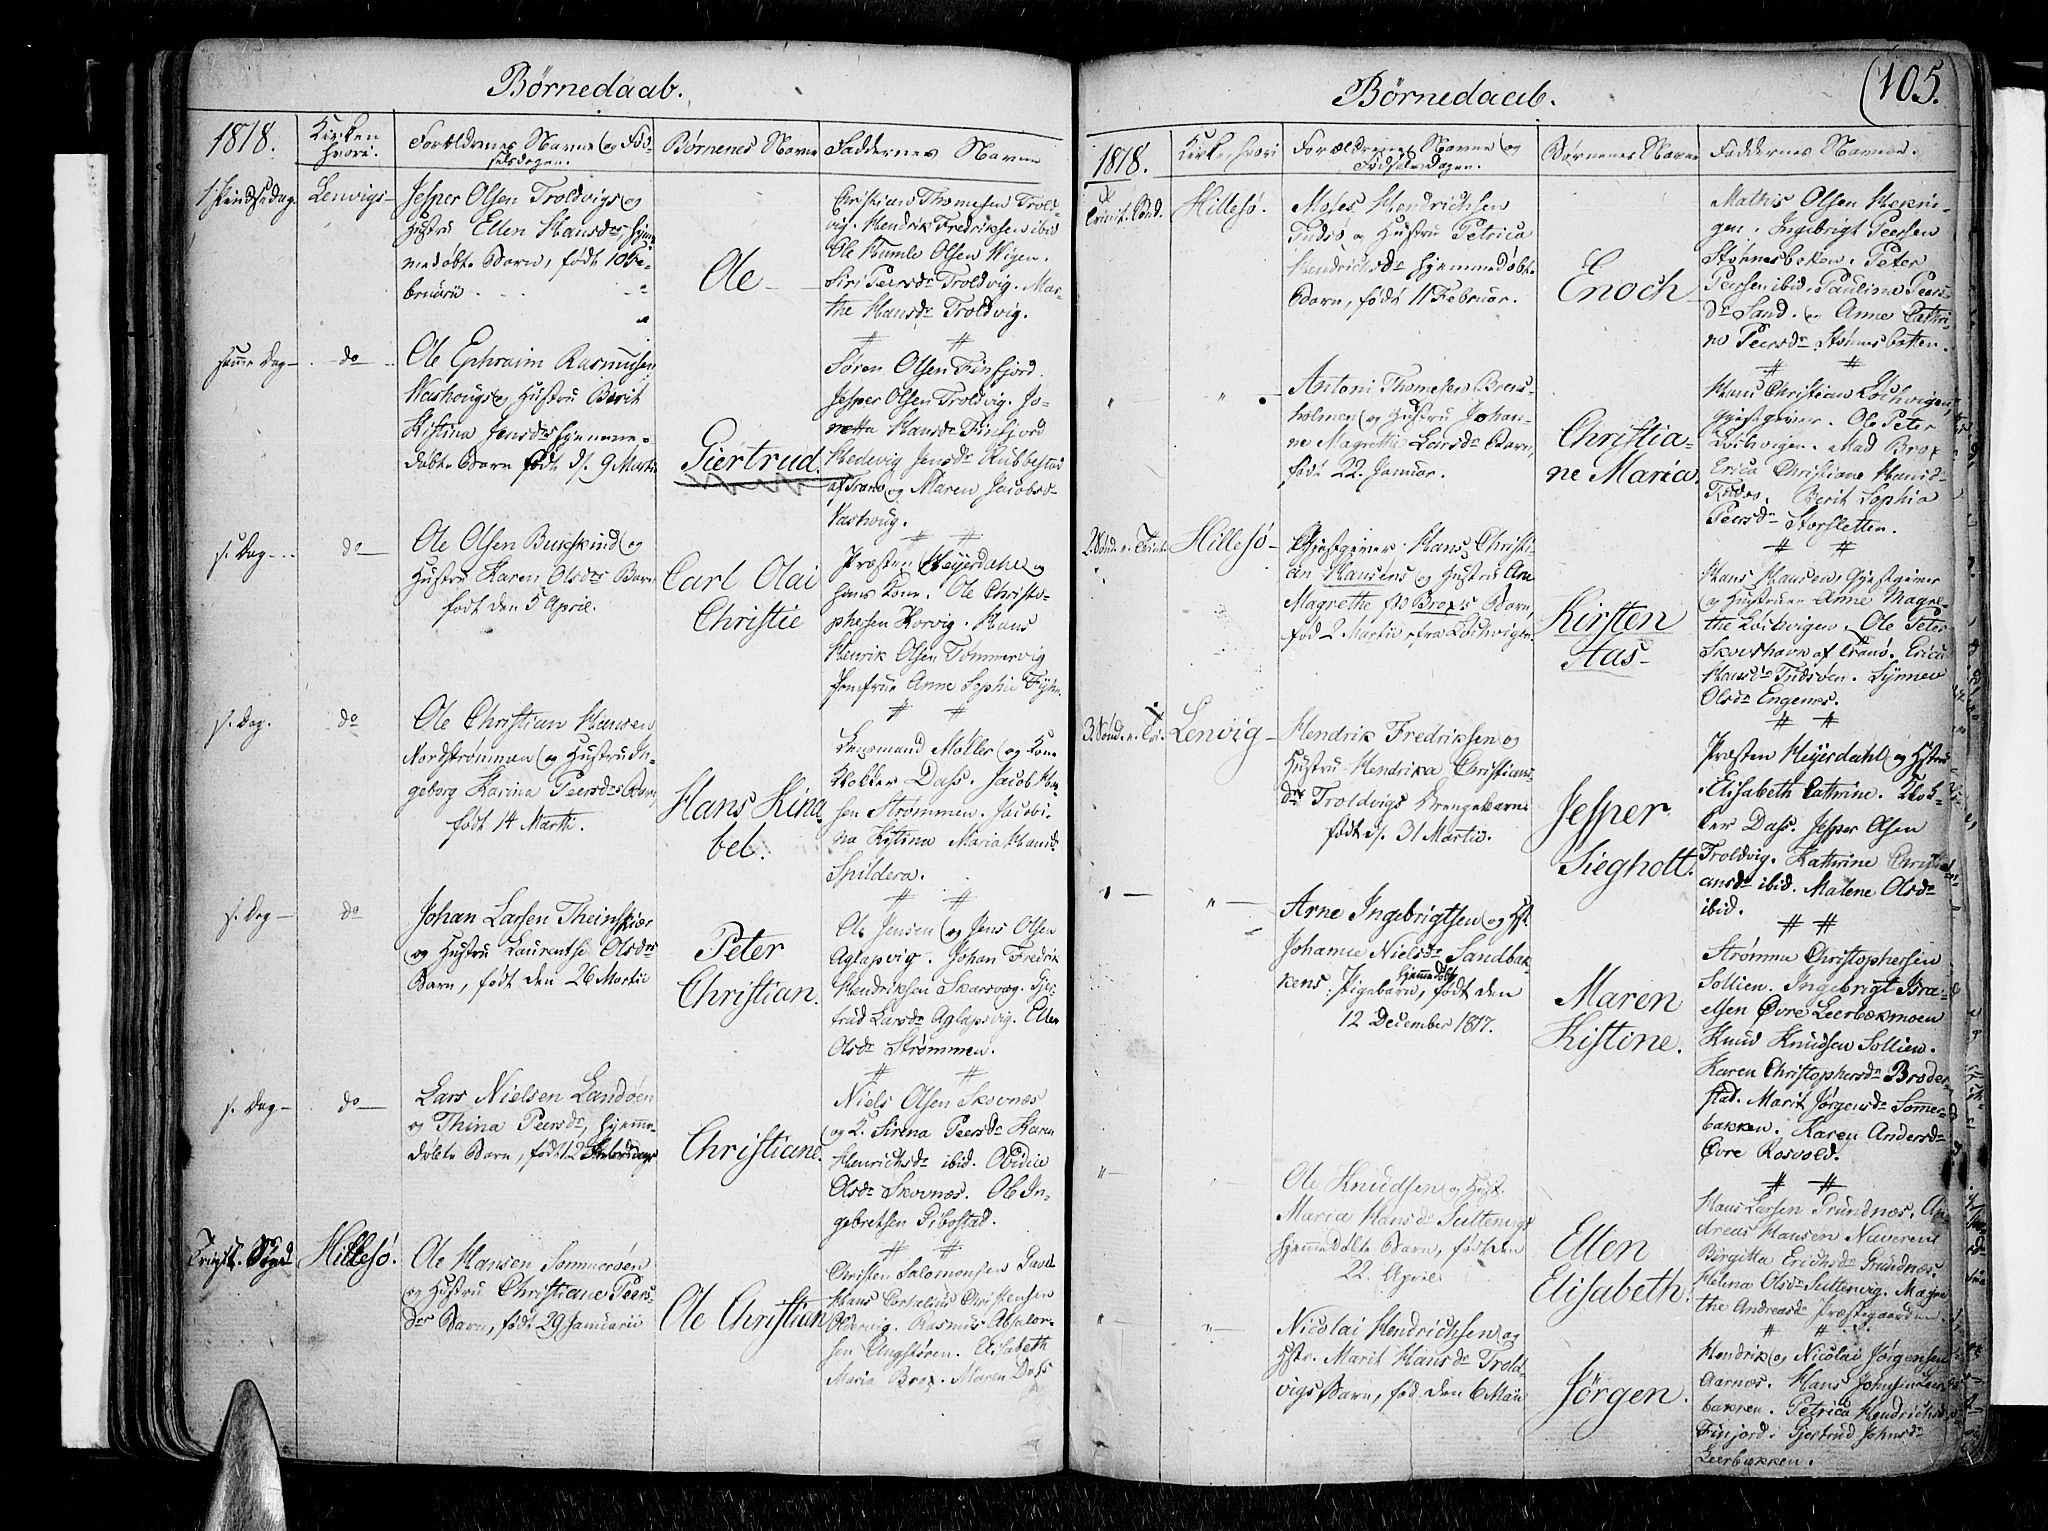 Børnedaab.
1818.
Kirken hvori.
Forældrenes Navne og Fød-
selsdagen.
Børnenes Navne
Faddernes Navne
1 Pindsedag
Lenvigs
Jesper Olsen Troldvigs og
Hustru Ellen Hansdr hjem-
medøbte Barn, født 10 Fe-
bruarii
Ole
Christian Thomesen Trold-
vig. Hendrik Fredriksen ibid
Ole Humle Olsen Wigen.
Siri Peersdr Troldvig. Mar-
the Hansdr Troldvig.
samme Dag
do
Ole Ephraim Rasmusen
Vashougs og Hustru Berit
Kistina Jensdrs hjemme-
døbte Barn født d. 9 Martii
Giertrud.
Søren Olsen Finfjord.
Jesper Olsen Troldvig. Jo-
netta Hansdr Finfjord
Hedevig Jensdr Rubbestad
af Tranø og Maren Jacobsd
Vashoug.
s. Dag
do
Ole Olsen Bukskind og
Hustru Karen Olsdrs Barn
født den 5 April.
Carl Olai
Christie
Præsten Heyerdahl og
hans Kone. Ole Christo-
phersen Korvig. Hans
Henrik Olsen Tommervig
Jomfrue Anne Sophie
s. Dag.
do
Ole Christian Hansen
Nordstrømmen og Hustru In-
geborg Karina Peersdrs Barn,
født 14 Martii.
Hans Kina
bel.
Lensmand Møller og Kone
Klokker Dass. Jacob Han-
sen Strømmen. Jacobi-
na Kistina Maria Hansd
Spildera.
s. Dag
do
Johan Larsen Theinskiær
og Hustru Laurentse Olsdrs
Barn, født den 26 Martii
Peter
Christian.
Ole Jensen og Jens Olsen
Aglapvig. Johan Fredrik
Hendriksen Skarsvaag. Gjer-
trud Larsdr Aglapsvig. Ellen
Olsdr Strømmen.
s. Dag
do
Lars Nielsen Landøen
og Thina Peersdr, hjemme-
døbte Barn, født 12
Christiane.
Niels Olsen Skovnæs
og 2. Sirena Peersdr Karen
Henrichsdr ibid. Obidie
Olsdr Skovnæs. Ole In-
gebretsen Gibostad.
Hillesø.
Ole Hansen Sommerøen
og Hustru Christiane Peers-
drs Barn, født 29 Januarii
Ole Christian
Christen Salomonsen
Hans Cornelius Christensen
Oldervig. Rasmus Absalon-
sen Angstøren. Elisabeth
Maria Brox. Maren Dass
Børnedaab.
105.
1818.
Kirke hvori
Forældrenes Navne og
Fødselsdagen.
Børnenes Navne
Faddernes Navne.
Trinit. Sønd.
Hillesø.
Moses Hendrichsen
Tudsø og Hustru Petrica
Hendrichsdr hjemmedøbte
Barn, født 11 Februar.
Enoch
Mathis Olsen Hekni-
gen. Ingebrigt Peersen
Stønnesbotten. Peter
Peersen ibid. Paulina Peers-
dr Sand. og Anne Cathri-
ne Peersdr Stønnesbotten.
"
"
Antoni Thomesen Bens-
holmen og Hustru Johan-
ne Magrethe Larsdr Barn,
født 22. Januar.
Christia-
ne Maria.
Hans Christian
Gjestgiver. Ole Peter
Mad Brox
Erica Christiane Hansd
Tudsø. Berit Sophia
Peersdr Storsletten.
2. Sønd. e. Trinit.
Hillesø
Gjestgiver Hans Christi-
an Hansens og Hustru Ane
Magrethe fød Brox's Barn,
fød 2 Martii
Kirsten
Aas
Hans Hansen, Gjestgiver
og Hustrue Anne Magre-
the Ole Peter
Skovshavn af Tranø. Erica
Hansdr Tudsøen. Synnev
Olsdr Engenes.
3. Sønd. e. Tri.
Lenvig
Hendrik Fredriksen og
Hustru Hendrika Christians-
drs Troldvigs Drengebarn
født d. 31 Martii.
Jesper
Siegholt.
Præsten Heyerdahl og Hustru
Elisabeth Cathrine. Klok-
ker Dass. Jesper Olsen
Troldvig. Kathrine Christi-
ansdr ibid. Malene Olsdr
ibid.
"
"
Arne Ingebrigtsen og Hst.
Johanne Nielsdr Sandbak-
kens Pigebarn, hjemmedøbt født den
12 December 1817.
Maren
Kistine.
Strømme Christophersen
Sollien. Ingebrigt Isra-
elsen Øvre Leerbækmoen
Knud Knudsen Sollien.
Karen Christophersdr Broder-
stad. Marit Jørgensdr Sommer-
bakken. Karen Andersdr
Øvre Rosvold.
"
"
Ole Knudsen og Hust.
Maria Hansdr Sultenvigs
hjemmedøbte Barn, født den
22. April.
Ellen
Elisabeth.
Hans Larsen Grundnæs. An-
dreas Hansen Naveren
Birgitta Erichsdr Grundnæs.
Helena Olsdr Sultenvig. Magre
the Andreasdr Præstegaarden.
"
"
Nicolai Hendrichsen og
Hstr. Marit Hansdr Trold-
vigs Barn, fød den 6 Maii
Jørgen.
Hendrik og Nicolai Jørgensen
Aarnæs. Hans Leer-
bakken. Petrica Hendrichsd
Finjord. Gjertrud Johnsdr
Leerbakken.